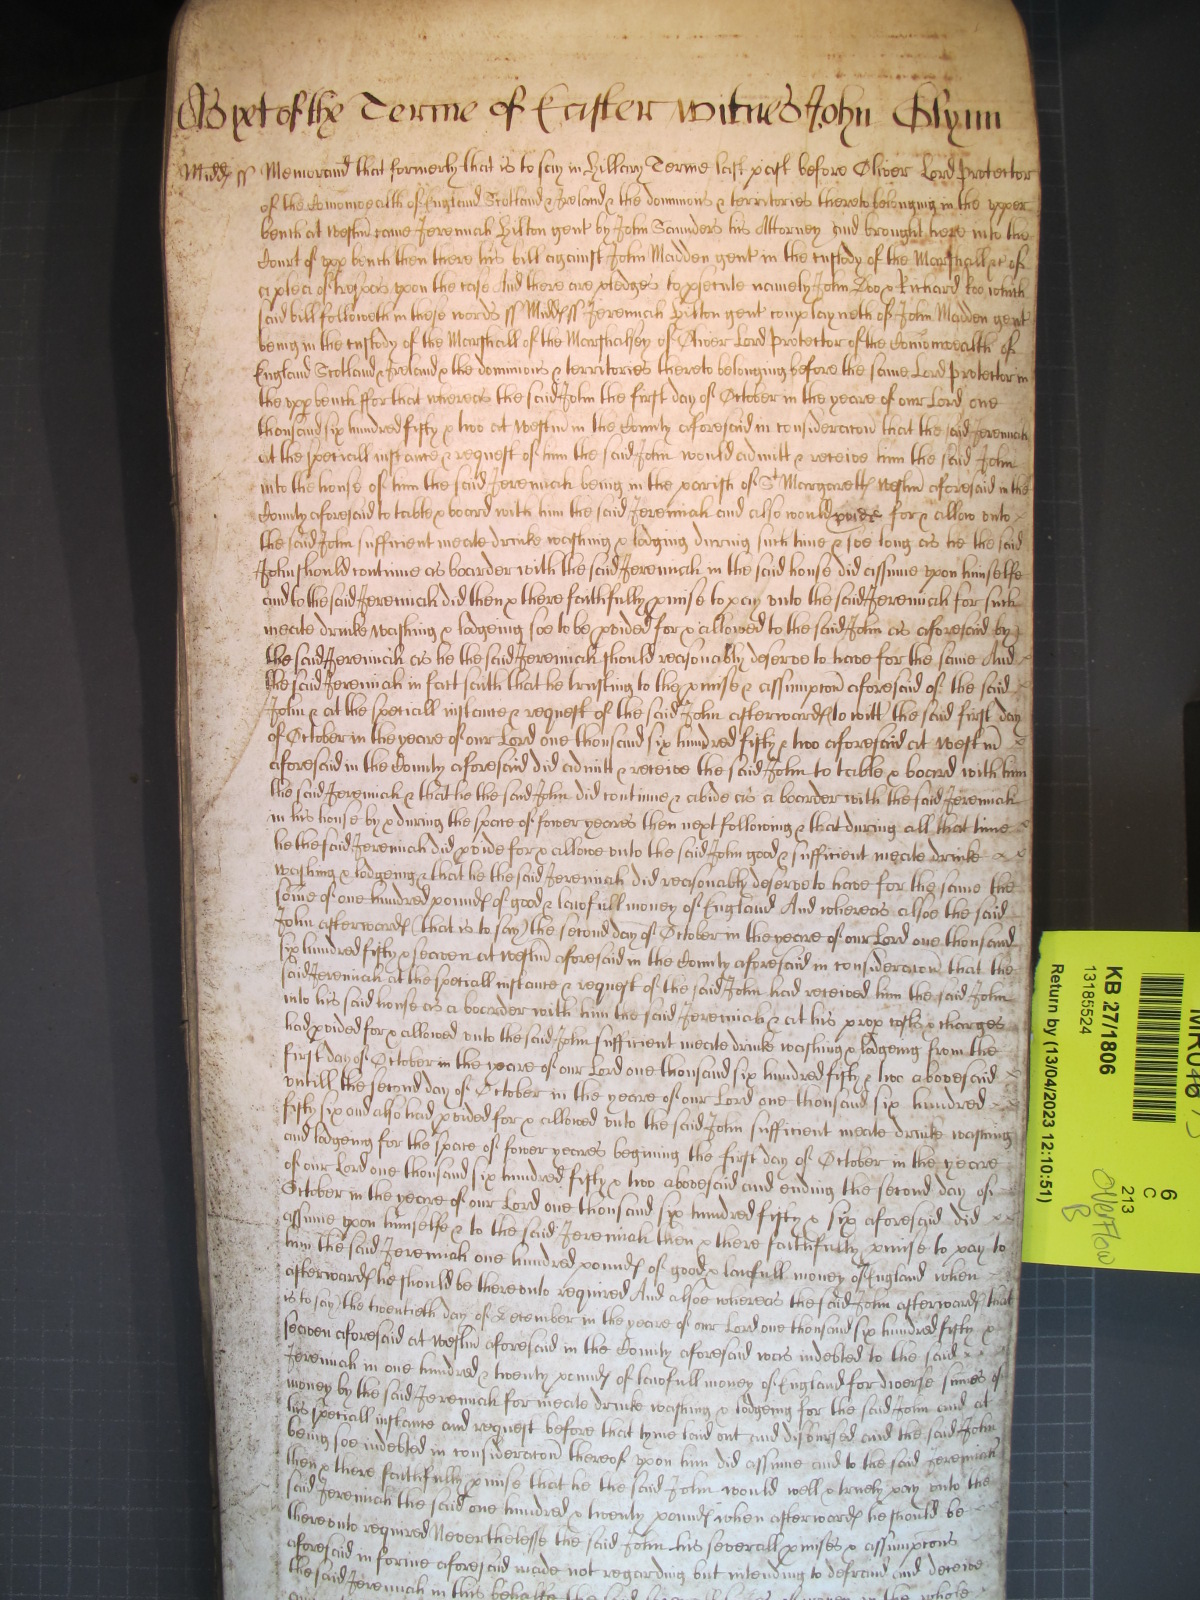 As yet of the Terme of Easter Witnes John Glynn
Midd ss Memorand that formerly that is to say in Hillary Terme last past before Oliver Lord Protector
of the Comonwealth of England Scotland & Ireland & the dominions & territories thereto belonging in the upper
bench at Westm came Jeremiah Hilton gent by John Saunders his Attorney And brought here into the
Court of upp bench then there his bill against John Madden gent in the custody of the Marshall &c of
a plea of trespas upon the case And there are pledges to psecute namely John Doo & Richard Roo which
said bill followeth in these words ss Midd ss Jeremiah Hilton gent complayneth of John Madden gent
being in the custody of the Marshall of the Marshalsey of Oliver Lord Protector of the Comonwealth of
England Scotland & Ireland & the dominions & territories thereto belonging before the same Lord Protector in
the upp bench ffor that whereas the said John the first day of October in the yeare of our Lord one
thousand six hundred fifty & two at Westm in the County aforesaid in consideracon that the said Jeremiah
at the speciall instance & request of him the said John would admitt & receive him the said John
into the house of him the said Jeremiah being in the parish of St Margaretts Westm aforesaid in the
County aforesaid to table & board with him the said Jeremiah and also would pvide for & allow unto
the said John sufficient meate drinke washing & lodging during such time & soe long as he the said
John should continue as boarder with the said Jeremiah in the said house did assume upon himselfe
and to the said Jeremiah did then & there faithfully pmise to pay unto the said Jeremiah for such
meate drinke washing & lodgeing soe to be pvided for & allowed to the said John as aforesaid by
the said Jeremiah as he the said Jeremiah should reasonably deserve to have for the same And
the said Jeremiah in fact saith that he trusting to the pmise & assumpton aforesaid of the said
John & at the speciall instance & request of the said John afterwards to witt the said first day
of October in the yeare of our Lord one thousand six hundred fifty & two aforesaid at Westm
aforesaid in the County aforesaid did admitt & receive the said John to table & board with him
the said Jeremiah & that he the said John did continue & abide as a boarder with the said Jeremiah
in his house by & during the space of fower yeares then next following & that during all that time
he the said Jeremiah did pvide for & allowe unto the said John good & sufficient meate drinke
washing & lodgeing & that he the said Jeremiah did reasonably deserve to have for the same the
some of one hundred pounds of good & lawfull money of England And whereas alsoe the said
John afterwards (that is to say) the second day of October in the yeare of our Lord one thousand
six hundred fifty & seaven at Westm aforesaid in the County aforesaid in consideracon that the
said Jeremiah at the speciall instance & request of the said John had received him the said John
into his said house as a boarder with him the said Jeremiah & at his prop costs & charges
had pvided for & allowed unto the said John sufficient meate drinke washing & lodgeing from the
first day of October in the yeare of our Lord one thousand six hundred fifty & two abovesaid
untill the second day of October in the yeare of our Lord one thousand six hundred
fifty six and also had pvided for & allowed unto the said John sufficient meate drinke washing
and lodgeing for the space of fower yeares begining the first day of October in the yeare
of our Lord one thousand six hundred fifty & two abovesaid and ending the second day of
October in the yeare of our Lord one thousand six hundred fifty & six aforesaid did
assume upon himselfe & to the said Jeremiah then & there faithfully pmise to pay to
him the said Jeremiah one hundred pounds of good & lawfull money of England when
afterwards he should be thereunto required And alsoe whereas the said John afterwards that
is to say) the twentieth day of December in the yeare of our Lord one thousand six hundred fifty &
seaven aforesaid at Westm aforesaid in the County aforesaid was indebted to the said
Jeremiah in one hundred & twenty pounds of lawfull money of England for diverse sumes of
money by the said Jeremiah for meate drinke washing & lodgeing for the said John and at
his speciall instance and request before that tyme laid out and disbursed and the said John
being soe indebted in consideracon thereof upon him did assume and to the said Jeremiah
then & there faithfully pmise that he the said John would well & truely pay unto the
said Jeremiah the said one hundred & twenty pounds when afterwards he should be
thereunto required Neverthelesse the said John his severall pmises & assumptons
aforesaid in forme aforesaid made not regarding but intending to defraud and deceive
the said Jeremiah in this behalfe
KB 27/1806
13185524
Return by (13/04/2023 12:10:51)
6
C
213
Overflow
B